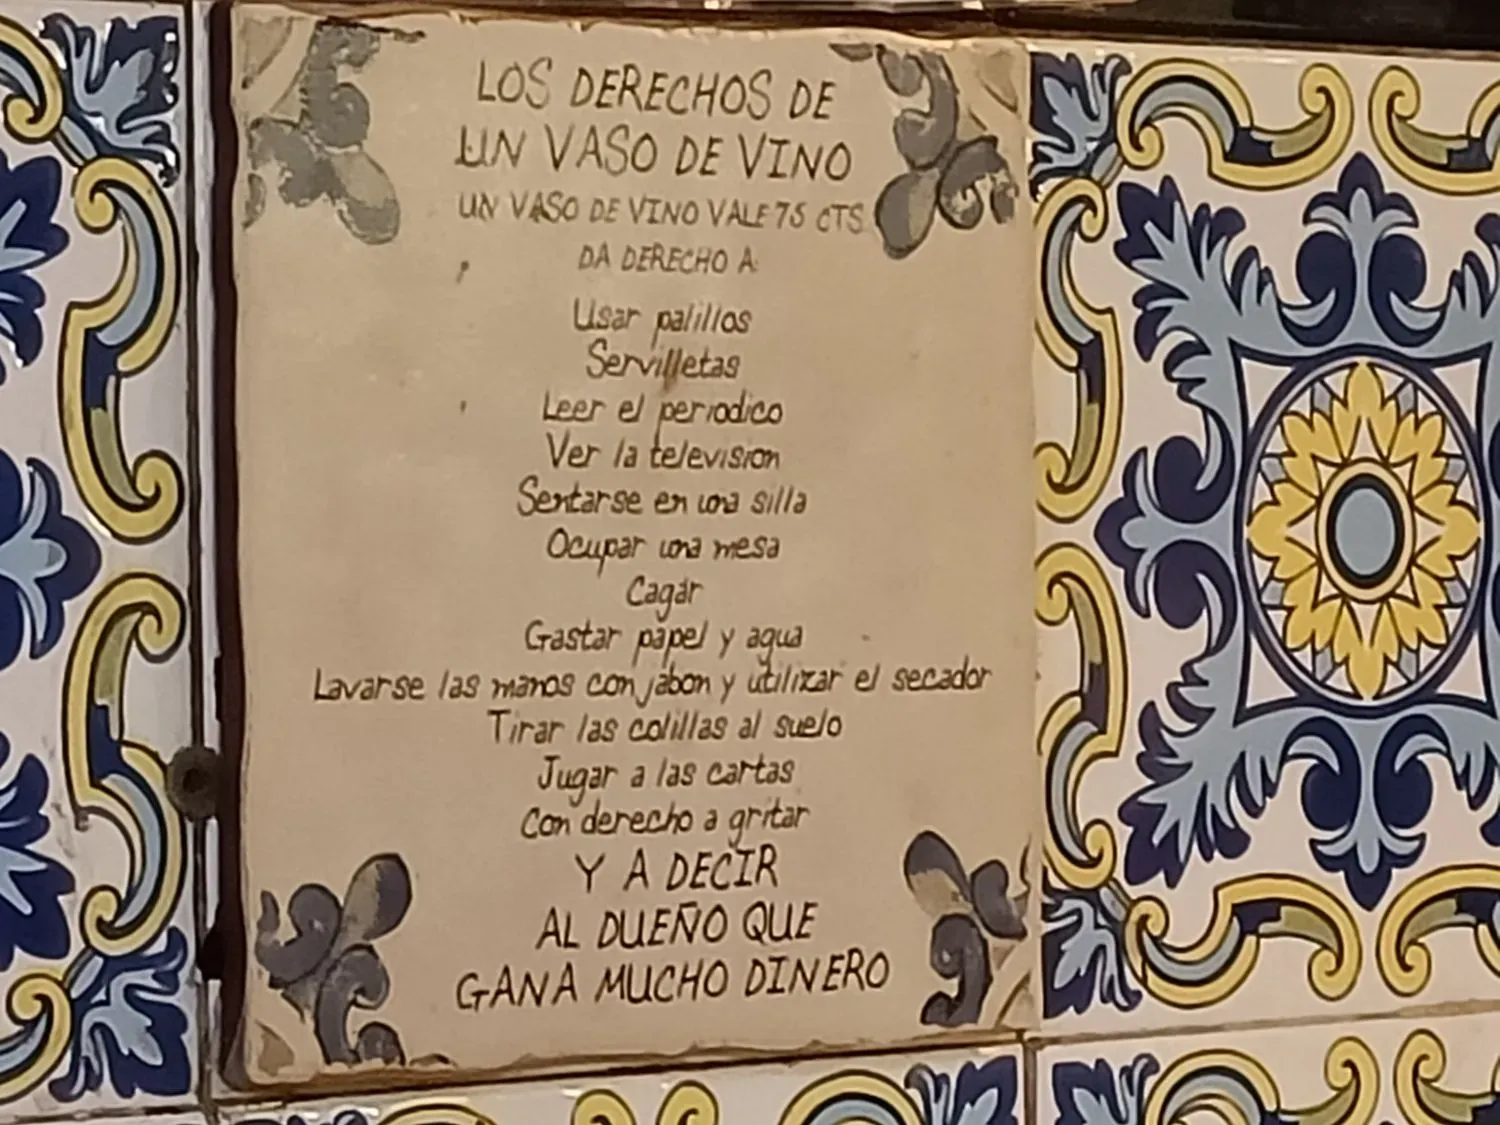 LOS DERECHOS DE
UN VASO DE VINO
UN VASO DE VINO VALE 75 CTS
DA DERECHO A:
Usar palillos
Servilletas
Leer el periodico
Ver la television
Sentarse en una silla
Ocupar una mesa
Cagar
Gastar papel y agua
Lavarse las manos con jabon y utilizar el secador
Tirar las colillas al suelo
Jugar a las cartas
Con derecho a gritar
Y A DECIR
AL DUEÑO QUE
GANA MUCHO DINERO